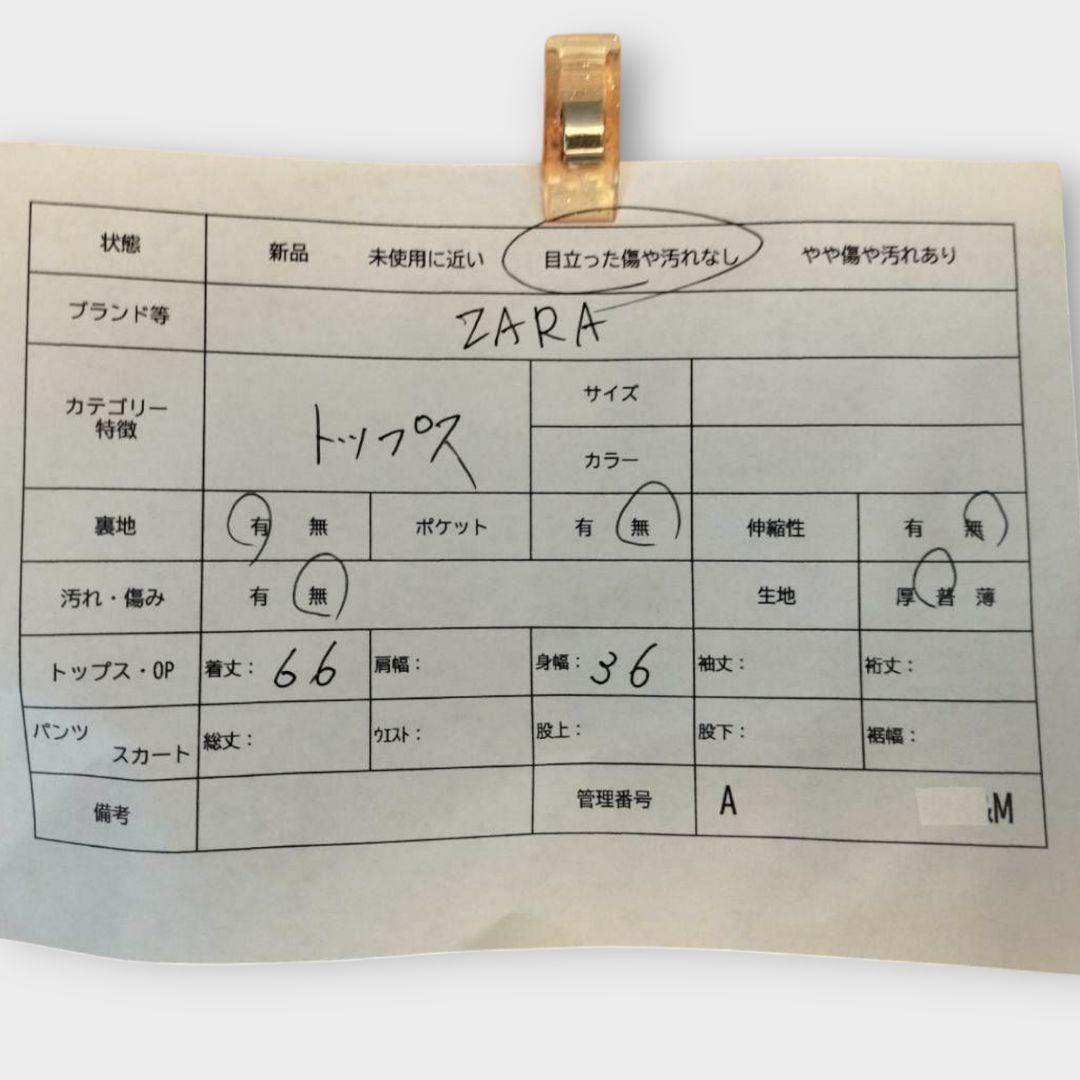 状態 新品 未使用に近い 目立った傷や汚れなし やや傷や汚れあり
ブランド等 ZARA
カテゴリー
特徴
トップス
サイズ
カラー
裏地 有 無 ポケット 有 無 伸縮性 有 無
汚れ・傷み 有 無 生地 厚 普 薄
トップス・OP 着丈: 66 肩幅: 身幅: 36 袖丈: 裄丈:
パンツ
スカート
総丈: ウエスト: 股上: 股下: 裾幅:
備考 管理番号 A &M